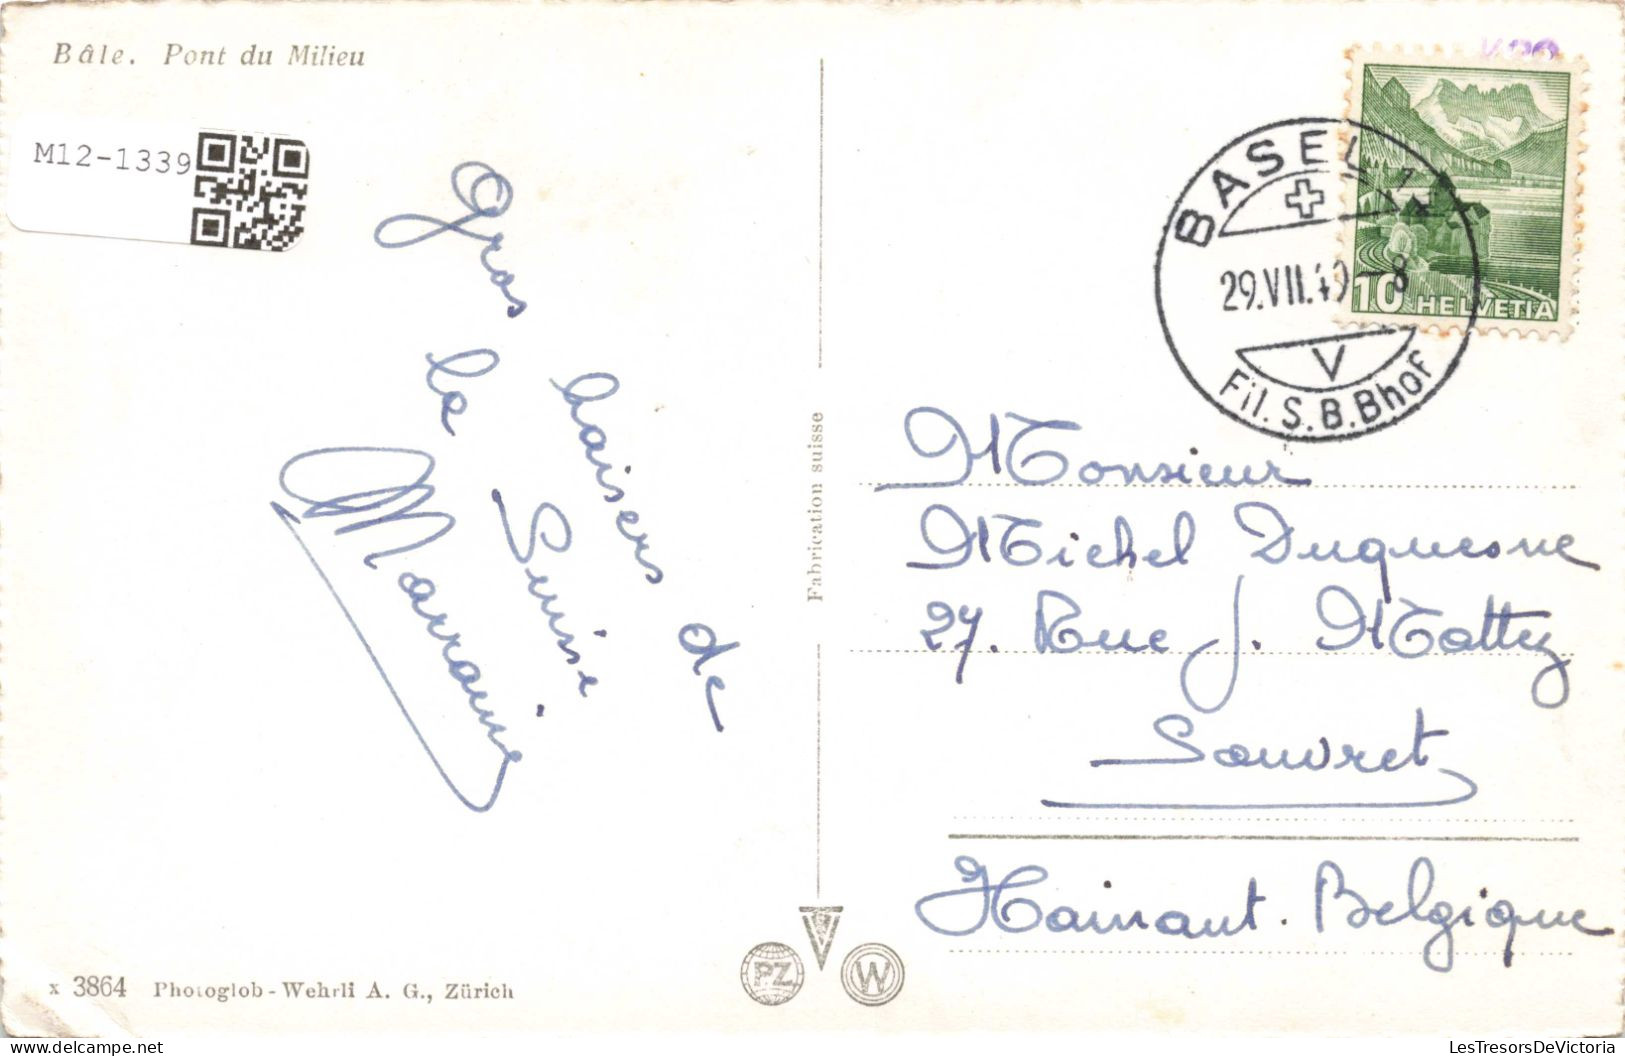 Bâle. Pont du Milieu
M12-1339
Gros baisers de
la Suisse
Marraine
x 3864 Photoglob-Wehrli A. G., Zürich
Fabrication suisse
PZ
W
BASEL 1
29.VII.49-8
V
Fil. S.B.Bhof
10 HELVETIA
Monsieur
Michel Duquesne
27. Rue J. Mattez
Souvret
Hainaut. Belgique
LesTresorsDeVictoria